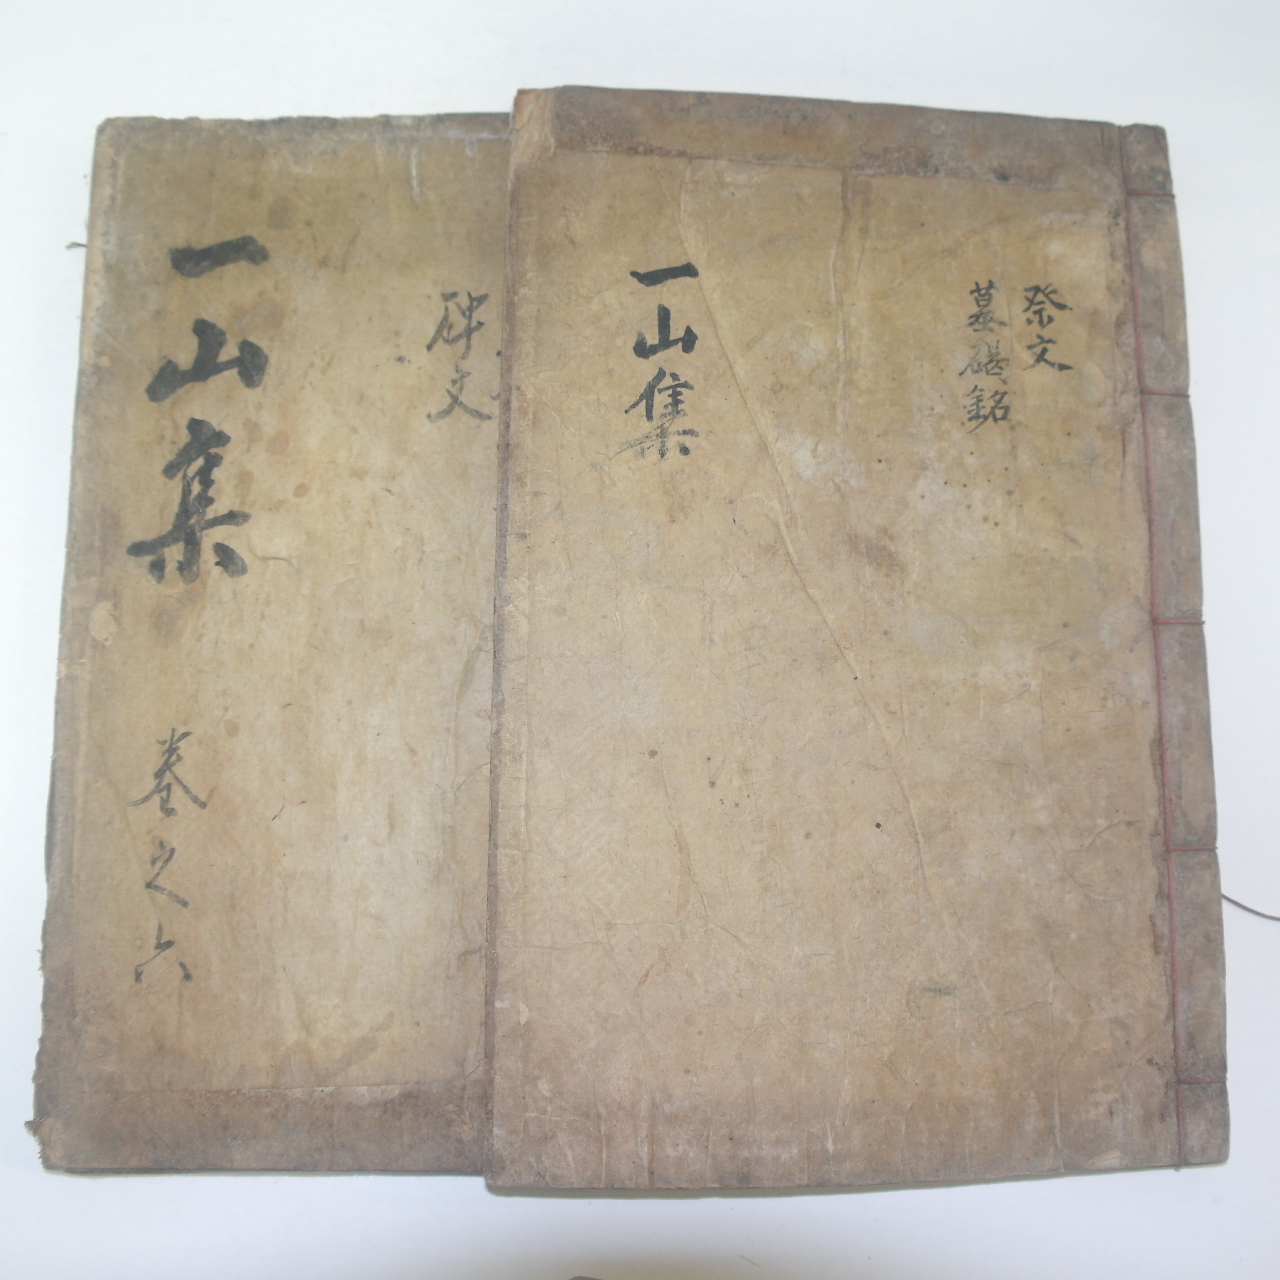 祭文
墓碣銘
一山集
碑文
一山集
卷之六